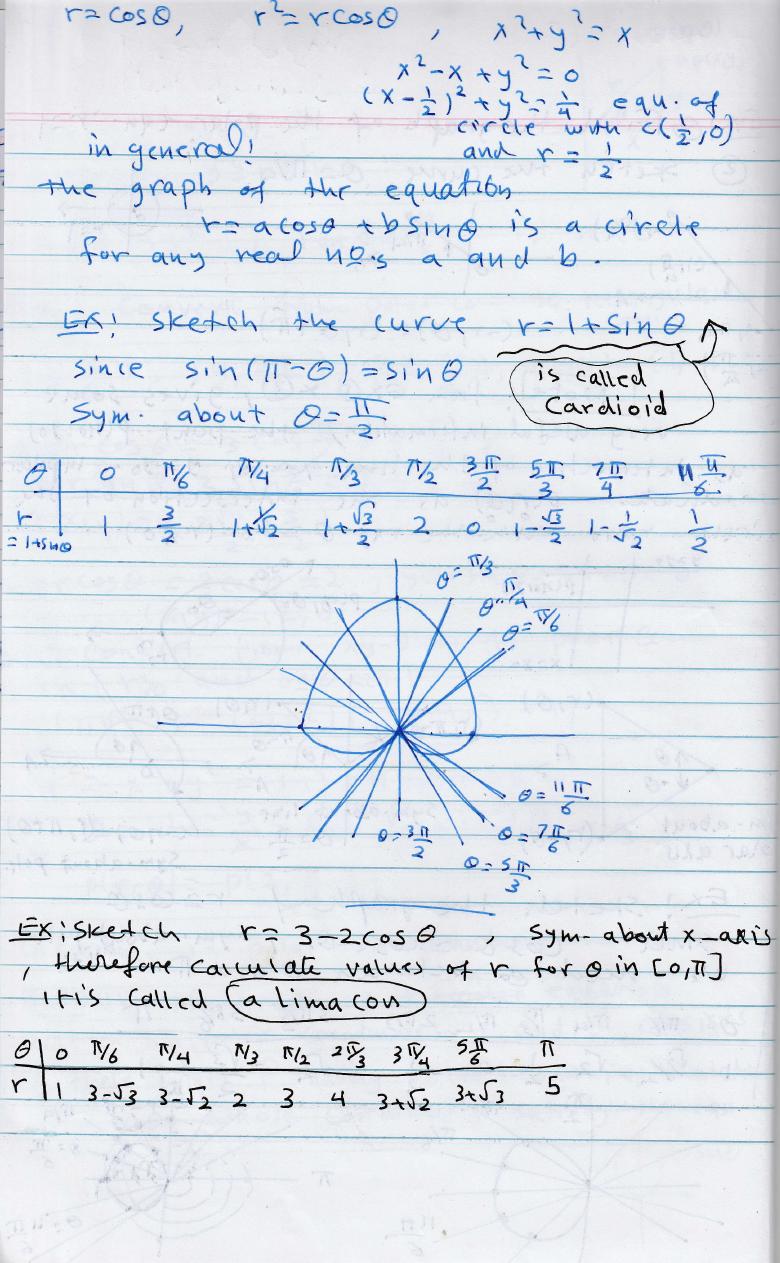 r = cosθ, r² = r cosθ, x² + y² = x
x² - x + y² = 0
(x - 1/2)² + y² = 1/4 equ. of
circle with c(1/2, 0)
and r = 1/2
in general!
the graph of the equation
r = a cosθ + b sinθ is a circle
for any real no.s a and b.
Ex: Sketch the curve r = 1 + sinθ
since sin(π - θ) = sinθ
is called
Cardioid
Sym. about θ = π/2
θ 0 π/6 π/4 π/3 π/2 3π/2 5π/3 7π/4 11π/6
r = 1+sinθ 1 3/2 1+1/√2 1+√3/2 2 0 1-√3/2 1-1/√2 1/2
θ = π/3
θ = π/4
θ = π/6
θ = 11π/6
θ = 3π/2 θ = 7π/6
θ = 5π/3
Ex: Sketch r = 3 - 2cosθ, sym. about x-axis
, therefore calculate values of r for θ in [0, π]
it is called a limacon
θ 0 π/6 π/4 π/3 π/2 2π/3 3π/4 5π/6 π
r 1 3-√3 3-√2 2 3 4 3+√2 3+√3 5